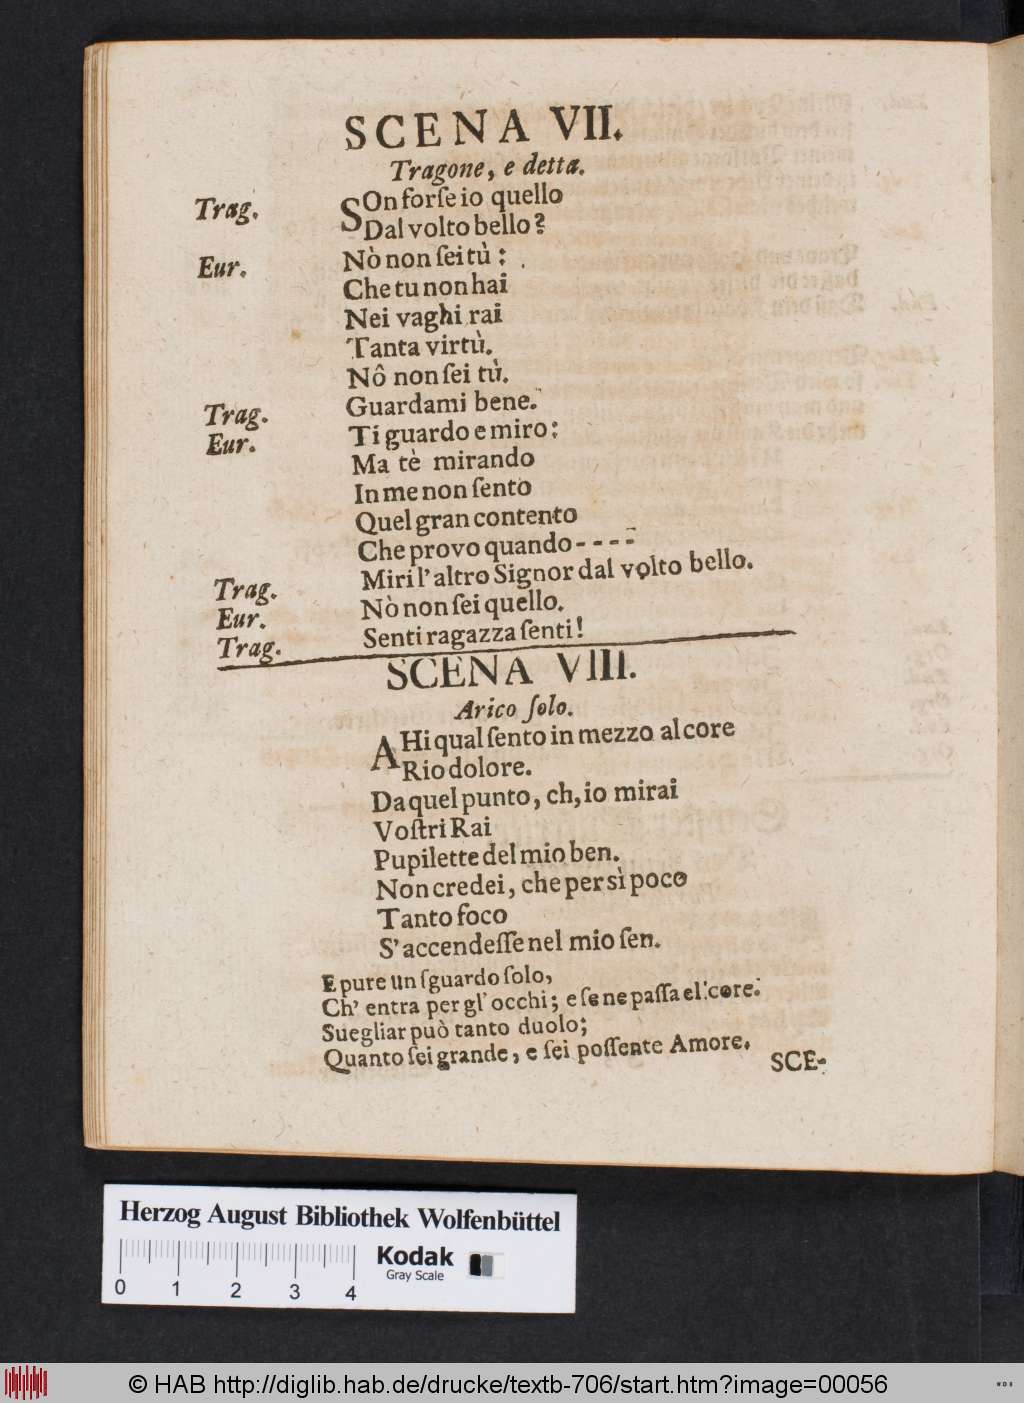 SCENA VII.
Tragone, e detta.
Trag. SOn forſe io quello
Dal volto bello?
Eur. Nò non ſei tù:
Che tu non hai
Nei vaghi rai
Tanta virtù.
Nô non ſei tù.
Trag. Guardami bene.
Eur. Ti guardo e miro:
Ma tè mirando
In me non ſento
Quel gran contento
Che provo quando - - - -
Trag. Miri l'altro Signor dal volto bello.
Eur. Nò non ſei quello.
Trag. Senti ragazza ſenti!
SCENA VIII.
Arico ſolo.
AHi qual ſento in mezzo al core
Rio dolore.
Da quel punto, ch, io mirai
Voſtri Rai
Pupilette del mio ben.
Non credei, che per sì poco
Tanto foco
S'accendeſſe nel mio ſen.
E pure un ſguardo ſolo,
Ch' entra per gl' occhi; e ſe ne paſſa el: core.
Suegliar può tanto duolo;
Quanto ſei grande, e ſei poſſente Amore.
SCE-
Herzog August Bibliothek Wolfenbüttel
Kodak
Gray Scale
0 1 2 3 4
© HAB http://diglib.hab.de/drucke/textb-706/start.htm?image=00056